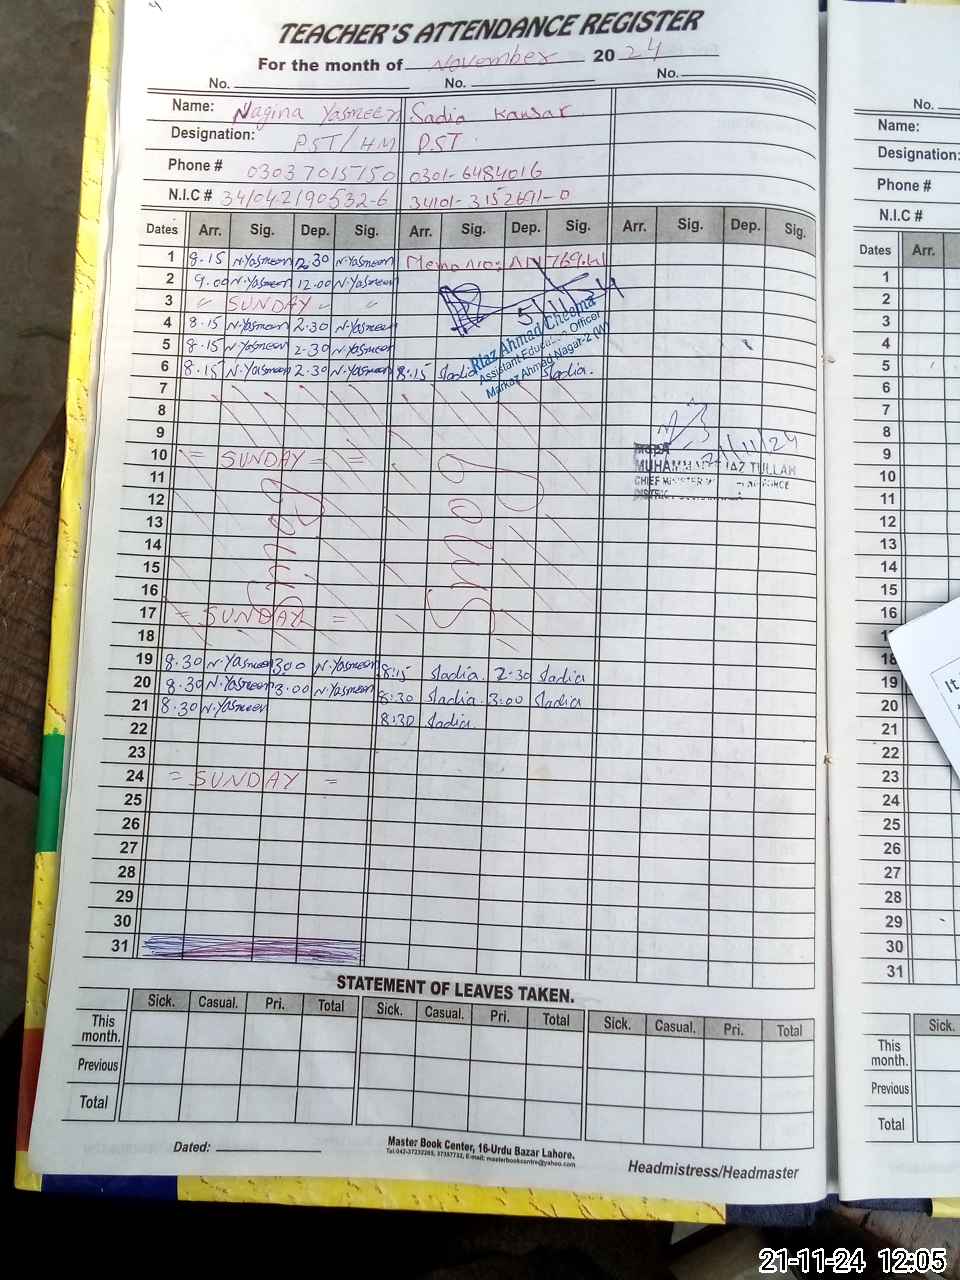 TEACHER'S ATTENDANCE REGISTER
For the month of November 2024
No. No. No.
Name: Nagina Yasmeen Sadia Kausar
Designation: PST/HM PST
Phone # 03037015750 0301-6484016
N.I.C # 34104 2190532-6 34101-3152691-0
Dates Arr. Sig. Dep. Sig. Arr. Sig. Dep. Sig. Arr. Sig. Dep. Sig.
1 8.15 N.Yasmeen 2.30 N.Yasmeen Memo No:
2 9.00 N.Yasmeen 12.00 N.Yasmeen
3 " SUNDAY " "
4 8.15 N.Yasmeen 2.30 N.Yasmeen 5/11/24
5 8.15 N.Yasmeen 2.30 N.Yasmeen
Riaz Ahmad Cheema
Assistant Education Officer
Markaz Ahmad Nagar-2 (W)
6 8.15 N.Yasmeen 2.30 N.Yasmeen 8:15 Sadia Sadia.
7
8
9
21/11/24
10 = SUNDAY = =
MUHAMMAD
CHIEF MINISTER
11
12
Smog Smog
13
14
15
16
17 = SUNDAY =
18
19 8.30 N.Yasmeen 3.00 N.Yasmeen 8:15 Sadia. 2-30 Sadia
20 8.30 N.Yasmeen 3.00 N.Yasmeen 8:30 Sadia. 3:00 Sadia
21 8.30 N.Yasmeen 8:30 Sadia.
22
23
24 = SUNDAY =
25
26
27
28
29
30
31
STATEMENT OF LEAVES TAKEN.
Sick. Casual. Pri. Total Sick. Casual. Pri. Total Sick. Casual. Pri. Total
This month.
Previous
Total
Dated:
Master Book Center, 16-Urdu Bazar Lahore.
Tel:042-37232265, 37357732, E-mail: masterbookcentre@yahoo.com
Headmistress/Headmaster
No.
Name:
Designation:
Phone #
N.I.C #
Dates Arr.
1
2
3
4
5
6
7
8
9
10
11
12
13
14
15
16
17
18
19
20
21
22
23
24
25
26
27
28
29
30
31
Sick.
This month.
Previous
Total
It
21-11-24 12:05